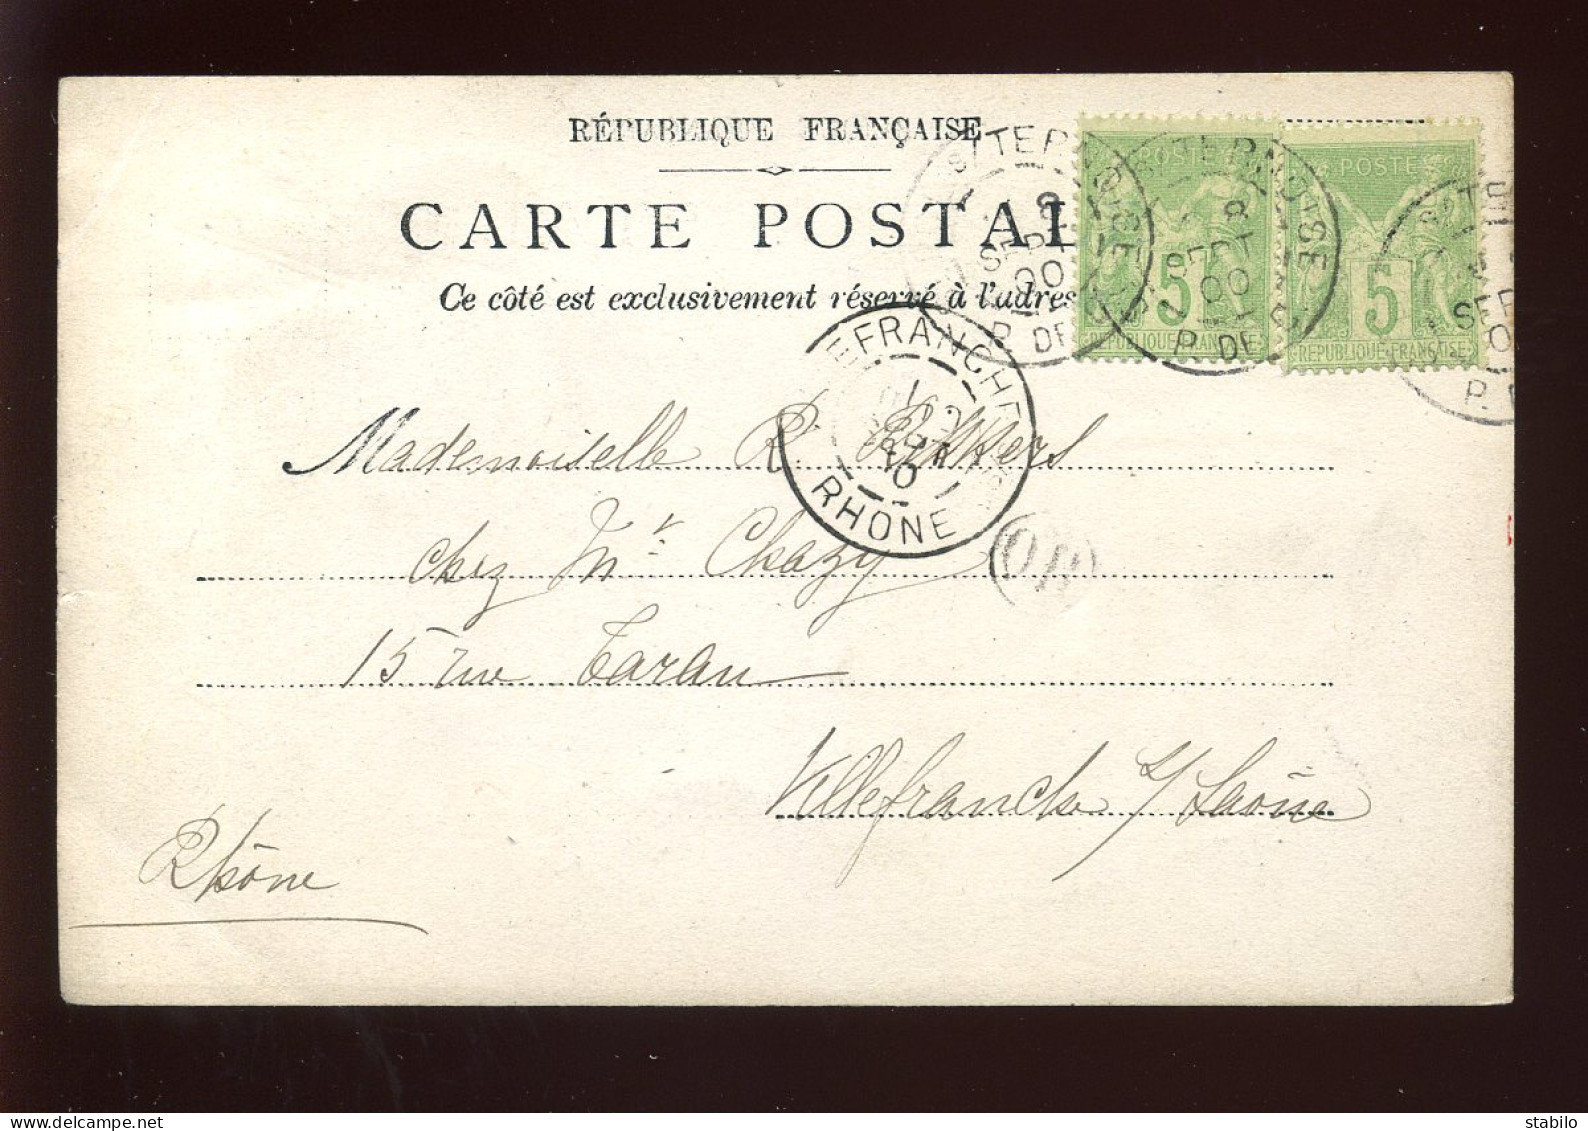 RÉPUBLIQUE FRANÇAISE
CARTE POSTAL
Ce côté est exclusivement réservé à l'adres
POSTES
5
REPUBLIQUE FRANÇAISE
POSTES
5
REPUBLIQUE FRANÇAISE
SEPT
00
P. DE
EFRANCHE
RHONE
Mademoiselle R.
chez Mr Chazy
OR
15 rue Tarau
Villefranche s/ Saône
Rhône
delcampe.net
stabilo